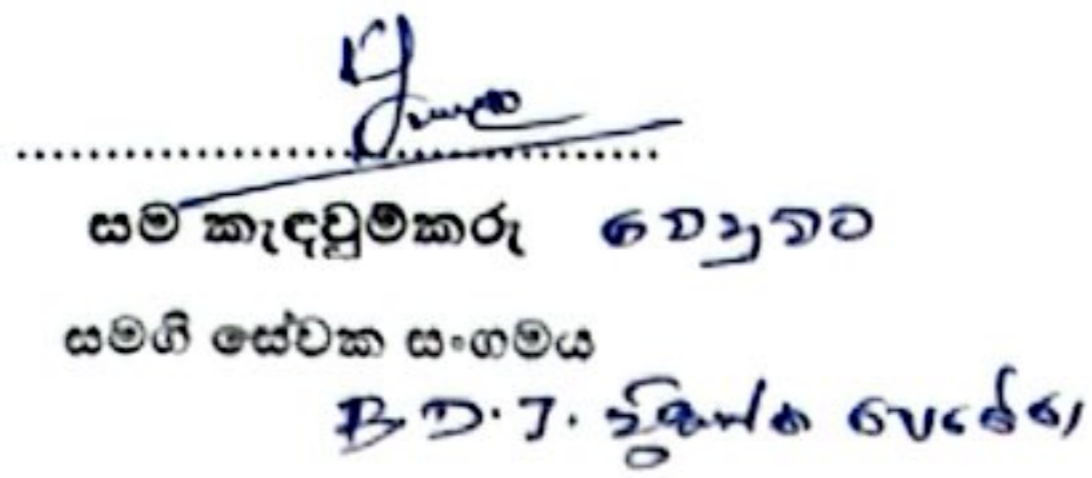 සම කැඳවුම්කරු වෙනුවට
සමගි සේවක සංගමය
B. D. J. ප්‍රියන්ත පෙරේරා